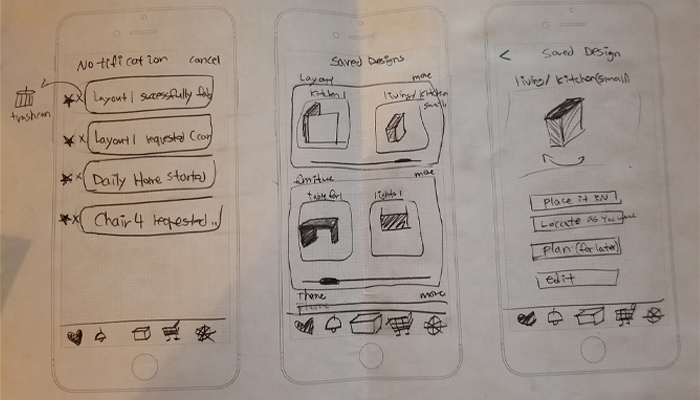 Notification cancel
trashcan
Layout 1 successfully
Layout 1 requested
Daily Home Started
Chair 4 requested..
Saved Designs
Layout more
Kitchen 1 living/Kitchen
Furniture more
table for 1 lights 1
Theme more
< Saved Design
living/Kitchen(small)
Place it IN
Locate As You
Plan (for later)
edit